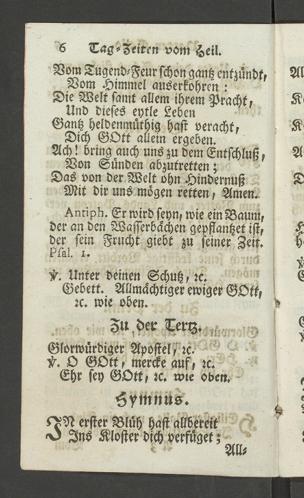 6 Tag-Zeiten vom Heil.
Vom Tugend-Feur schon gantz entzündt,
Vom Himmel auserkohren:
Die Welt samt allem ihrem Pracht,
Und dieses eytle Leben
Gantz heldenmüthig hast veracht,
Dich GOtt allein ergeben.
Ach! bring auch uns zu dem Entschluß,
Von Sünden abzutretten;
Das von der Welt ohn Hindernuß
Mit dir uns mögen retten, Amen.
Antiph. Er wird seyn, wie ein Baum,
der an den Wasserbächen gepflantzet ist,
der sein Frucht giebt zu seiner Zeit.
Psal. 1.
℣. Unter deinen Schutz, ꝛc.
Gebett. Allmächtiger ewiger GOtt,
ꝛc. wie oben.
Zu der Tertz.
Glorwürdiger Apostel, ꝛc.
℣. O GOtt, mercke auf, ꝛc.
Ehr sey GOtt, ꝛc. wie oben.
Hymnus.
IN erster Blüh hast allbereit
Ins Kloster dich verfüget;
All-